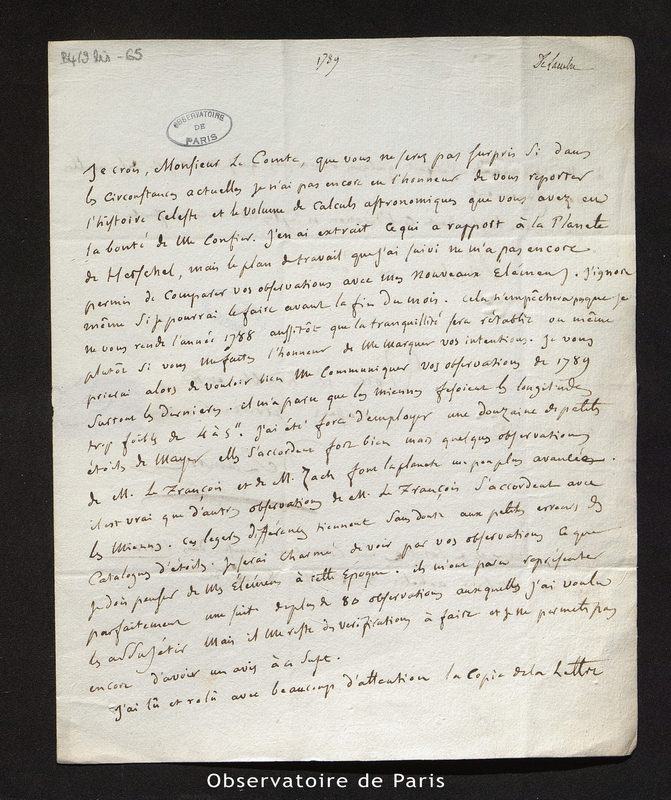 B4/9 bis - 65
1789
De Lambre
OBSERVATOIRE
DE
PARIS
Je crois, Monsieur Le Comte, que vous ne serez pas surpris Si dans
les Circonstances actuelles je n'ai pas encore eu l'honneur de vous reporter
l'histoire Celeste et le Volume de Calculs astronomiques que vous avez eu
la bonté de Me Confier. J'en ai extrait ce qui a rapport à la Planete
de Herschel, mais le plan de travail que j'ai suivi ne m'a pas encore
permis de Comparer vos observations avec mes Nouveaux Elémens. J'ignore
même Si je pourrai le faire avant la fin du mois. Cela n'empêchera pas que je
ne vous rende l'année 1788 aussitôt que la tranquillité sera rétablie ou même
plutôt si vous me faites l'honneur de Me Marquer vos intentions. Je vous
prierai alors de vouloir bien Me Communiquer vos observations de 1789
Surtout les dernieres. il m'a paru que les miennes fesoient les longitudes
trop foibles de 4 à 5". J'ai été forcé d'employer une douzaine de petites
étoiles de Mayer elles s'accordent fort bien mais quelques observations
de M. Le François et de M. Zach font la planete un peu plus avancée.
il est vrai que d'autres observations de M. Le François S'accordent avec
les Miennes. Ces legeres différences tiennent Sans doute aux petites erreurs des
Catalogues d'étoiles. Je serai charmé de voir par vos observations ce que
Je dois penser de Mes Elémens à cette Epoque. ils m'ont paru représenter
parfaitement une suite de plus de 80 observations auxquelles j'ai voulu
les assujétir Mais il Me reste des verifications à faire et je ne me permets pas
encore d'avoir un avis à ce Sujet.
J'ai lû et relû avec beaucoup d'attention la Copie de la Lettre
Observatoire de Paris